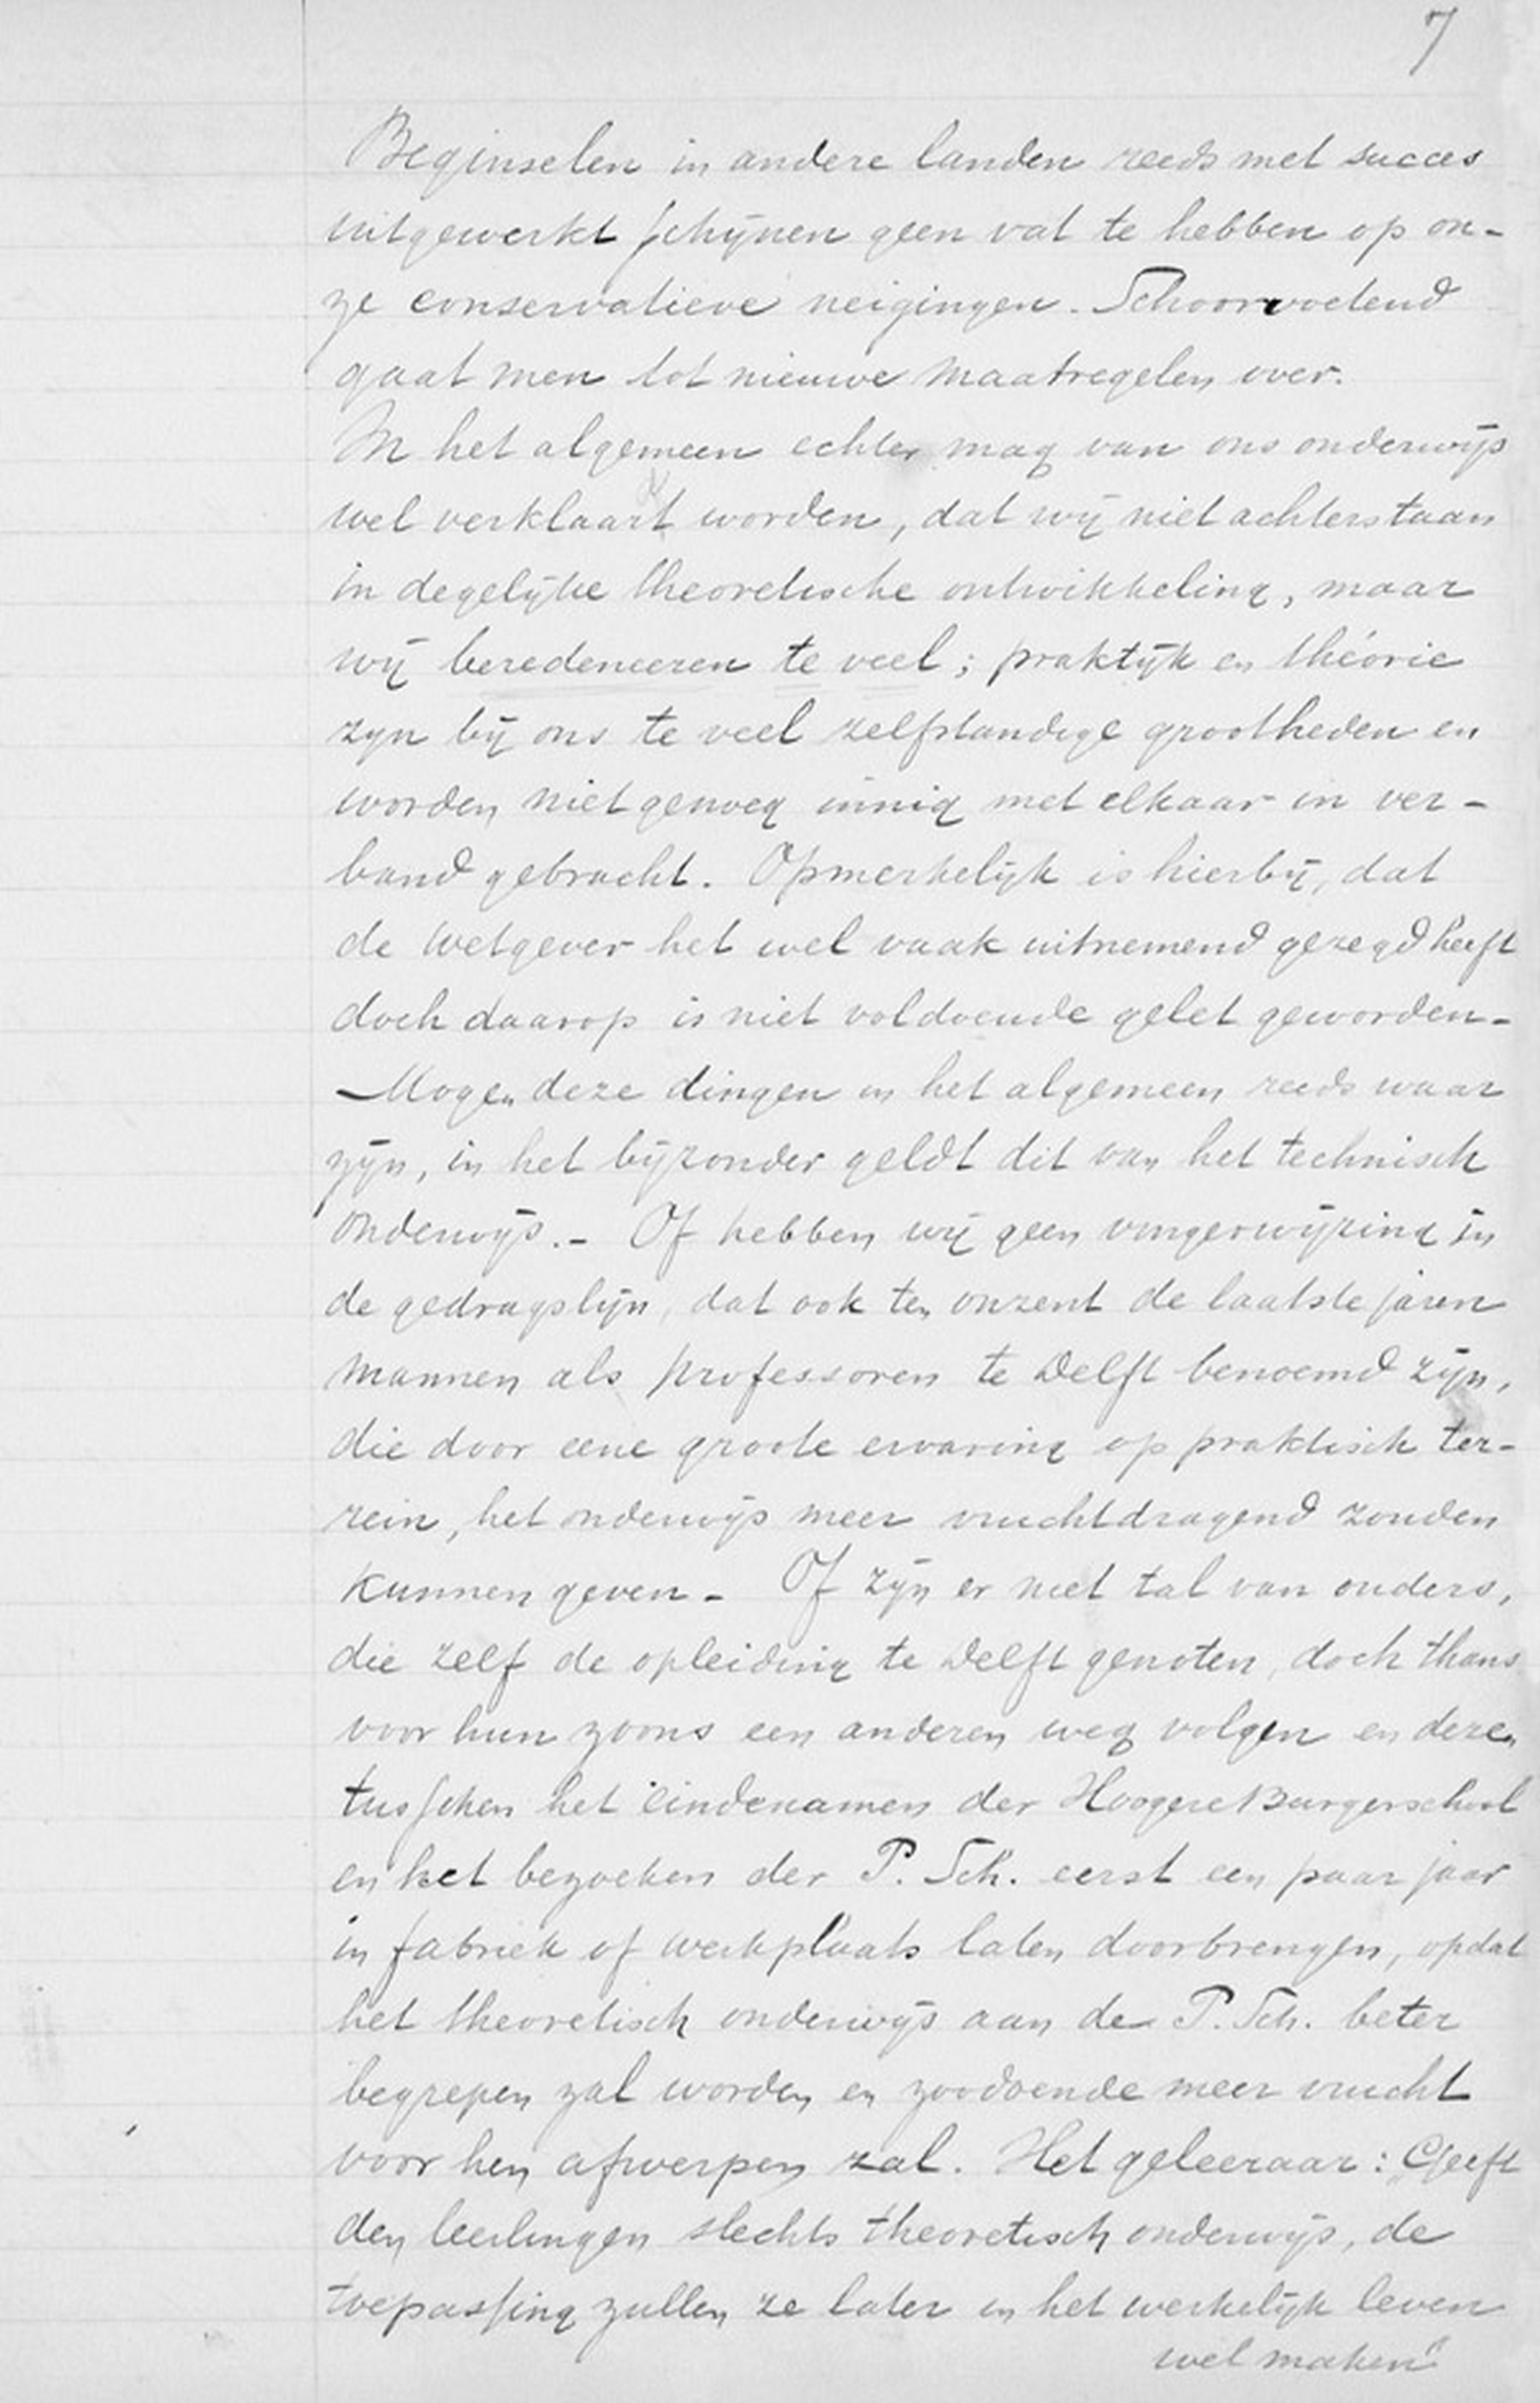 7
Beginselen in andere landen reeds met succes
uitgewerkt schijnen geen vat te hebben op on-
ze conservatieve neigingen. Schoorvoetend
gaat men tot nieuwe maatregelen over.
In het algemeen echter mag van ons onderwijs
wel verklaart worden, dat wij niet achterstaan
in degelijke theoretische ontwikkeling, maar
wij beredeneeren te veel; praktijk en théorie
zyn bij ons te veel zelfstandige grootheden en
worden niet genoeg innig met elkaar in ver-
band gebracht. Opmerkelijk is hierbij, dat
de wetgever het wel vaak uitnemend gezegd heeft
doch daarop is niet voldoende gelet geworden-
Mogen deze dingen in het algemeen reeds waar
zijn, in het bijzonder geldt dit van het technisch
onderwijs.- Of hebben wij geen vingerwijzing in
de gedragslijn, dat ook ten onzent de laatste jaren
mannen als professoren te Delft benoemd zijn,
die door eene groote ervaring op praktisch ter-
rein, het onderwijs meer vruchtdragend zouden
kunnen geven- Of zijn er niet tal van ouders,
die zelf de opleiding te Delft genoten, doch thans
voor hun zoons een anderen weg volgen en dezen
tusschen het eindexamen der Hoogere Burgerschool
en het bezoeken der P. Sch. eerst een paar jaar
in fabriek of werkplaats laten doorbrengen, opdat
het theoretisch onderwijs aan de P. Sch. beter
begrepen zal worden en zoodoende meer vrucht
voor hen afwerpen zal. Het geleeraar: "Geeft
den leerlingen slechts theoretisch onderwijs, de
toepassing zullen ze later in het werkelijk leven
wel maken"